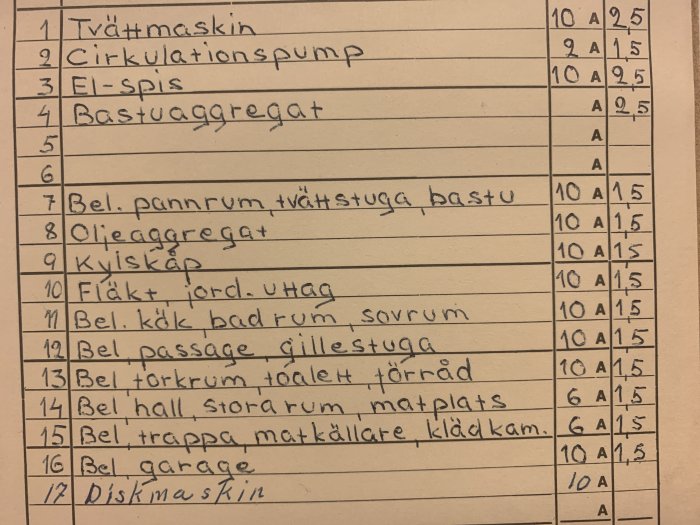 1 Tvättmaskin 10 A 2,5
2 Cirkulationspump 2 A 1,5
3 El-spis 10 A 2,5
4 Bastuaggregat A 2,5
5 A
6 A
7 Bel. pannrum, tvättstuga, bastu 10 A 1,5
8 Oljeaggregat 10 A 1,5
9 Kylskåp 10 A 1,5
10 Fläkt, jord. uttag 10 A 1,5
11 Bel. kök, badrum, sovrum 10 A 1,5
12 Bel, passage, gillestuga 10 A 1,5
13 Bel, torkrum, toalett, förråd 10 A 1,5
14 Bel, hall, stora rum, matplats 6 A 1,5
15 Bel, trappa, matkällare, klädkam. 6 A 1,5
16 Bel garage 10 A 1,5
17 Diskmaskin 10 A
A